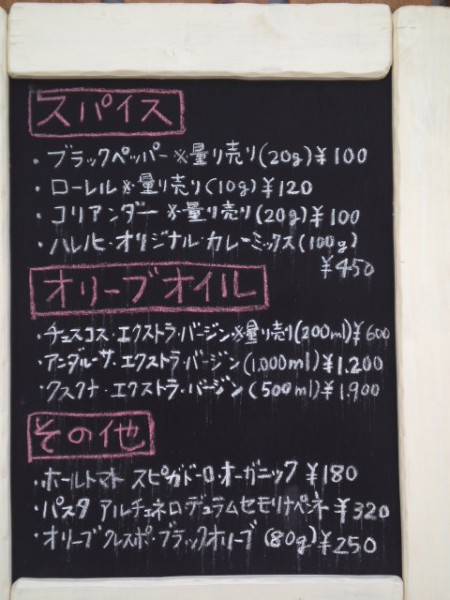 スパイス
・ブラックペッパー※量り売り(20g)¥100
・ローレル※量り売り(10g)¥120
・コリアンダー※量り売り(20g)¥100
・ハレルヒ・オリジナル・カレーミックス(100g)
¥450
オリーブオイル
・チェスゴス・エクストラ・バージン※量り売り(200ml)¥600
・アンダルーサ・エクストラ・バージン(1,000ml)¥1,200
・クスクナ・エクストラ・バージン(500ml)¥1,900
その他
・ホールトマト スピガドーロ・オーガニック ¥180
・パスタ アルチェネロ・デュラムセモリナペンネ ¥320
・オリーブ クレスポ・ブラックオリーブ(80g)¥250